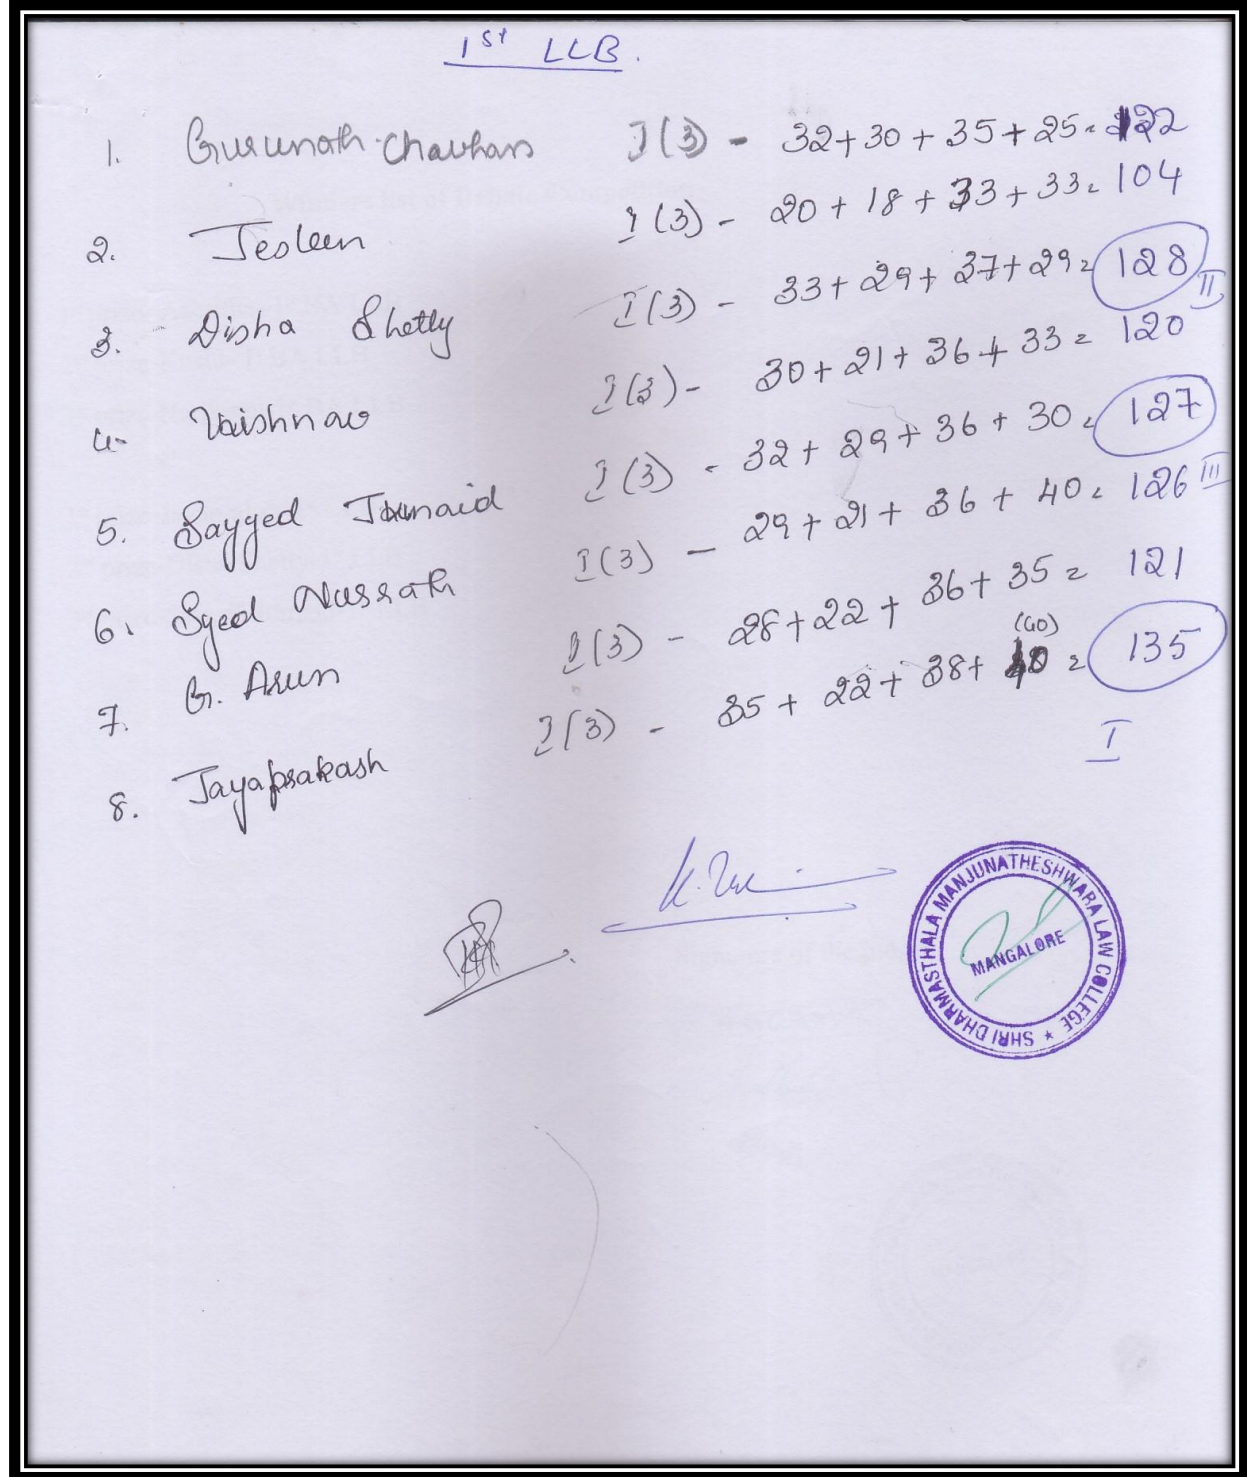 1st LLB.
1. Gurunath Chavhan I(3) - 32+30+35+25 = 122
2. Jesleen I(3) - 20+18+33+33= 104
3. Disha Shetty I(3) - 33+29+37+29= 128 II
4. Vaishnav I(3) - 30+21+36+33 = 120
5. Sayyed Junaid I(3) - 32+29+36+30= 127 III
6. Syed Nusrath I(3) - 29+21+36+40= 126
7. G. Arun I(3) - 28+22+36+35= 121
8. Jayaprakash I(3) - 35+22+38+ 40 (40) = 135
I
SHRI DHARMASTHALA MANJUNATHESHWARA LAW COLLEGE ★
MANGALORE